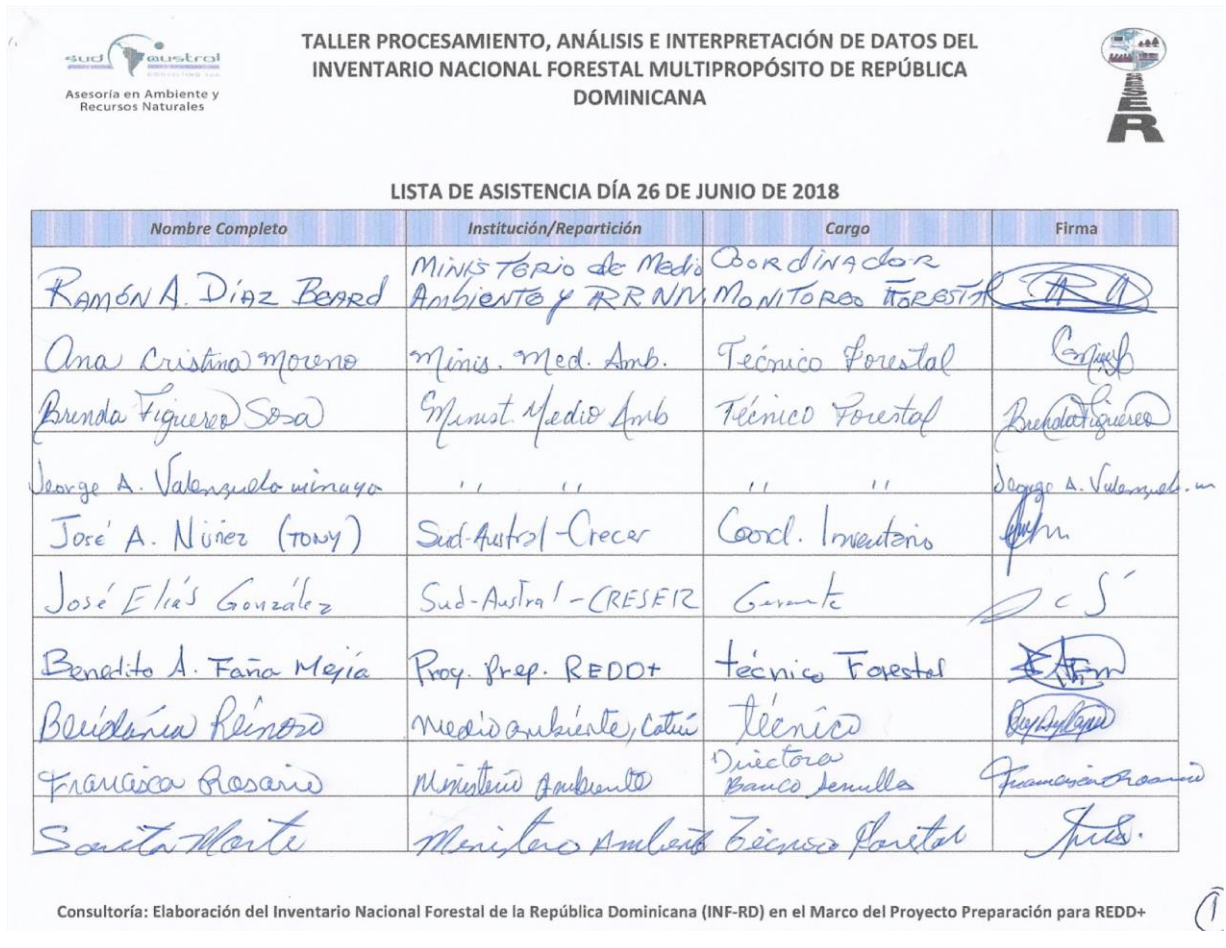 sud austral
CONSULTING SPA
Asesoría en Ambiente y
Recursos Naturales
TALLER PROCESAMIENTO, ANÁLISIS E INTERPRETACIÓN DE DATOS DEL
INVENTARIO NACIONAL FORESTAL MULTIPROPÓSITO DE REPÚBLICA
DOMINICANA
LISTA DE ASISTENCIA DÍA 26 DE JUNIO DE 2018
Nombre Completo Institución/Repartición Cargo Firma
Ramón A. Díaz Beard Ministerio de Medio Ambiente y RRNN Coordinador Monitoreo Forestal
Ana Cristina Moreno Minis. Med. Amb. Técnico Forestal
Brenda Figuereo Sosa Minist. Medio Amb Técnico Forestal Brenda Figuereo
George A. Valenzuela minaya '' '' '' '' George A. Valenzuela
José A. Núñez (TONY) Sud-Austral-Crecer Coord. Inventario
José Elías González Sud-Austral-CRESER Gerente
Benedito A. Faña Mejía Proy. Prep. REDD+ técnico Forestal
Reinoso Medio ambiente, Cotuí técnico
Francisca Rosario Ministerio Ambiente Directora Banco Semillas Francisca Rosario
Sarita Marte Ministerio Ambiente Técnico Forestal
Consultoría: Elaboración del Inventario Nacional Forestal de la República Dominicana (INF-RD) en el Marco del Proyecto Preparación para REDD+
1